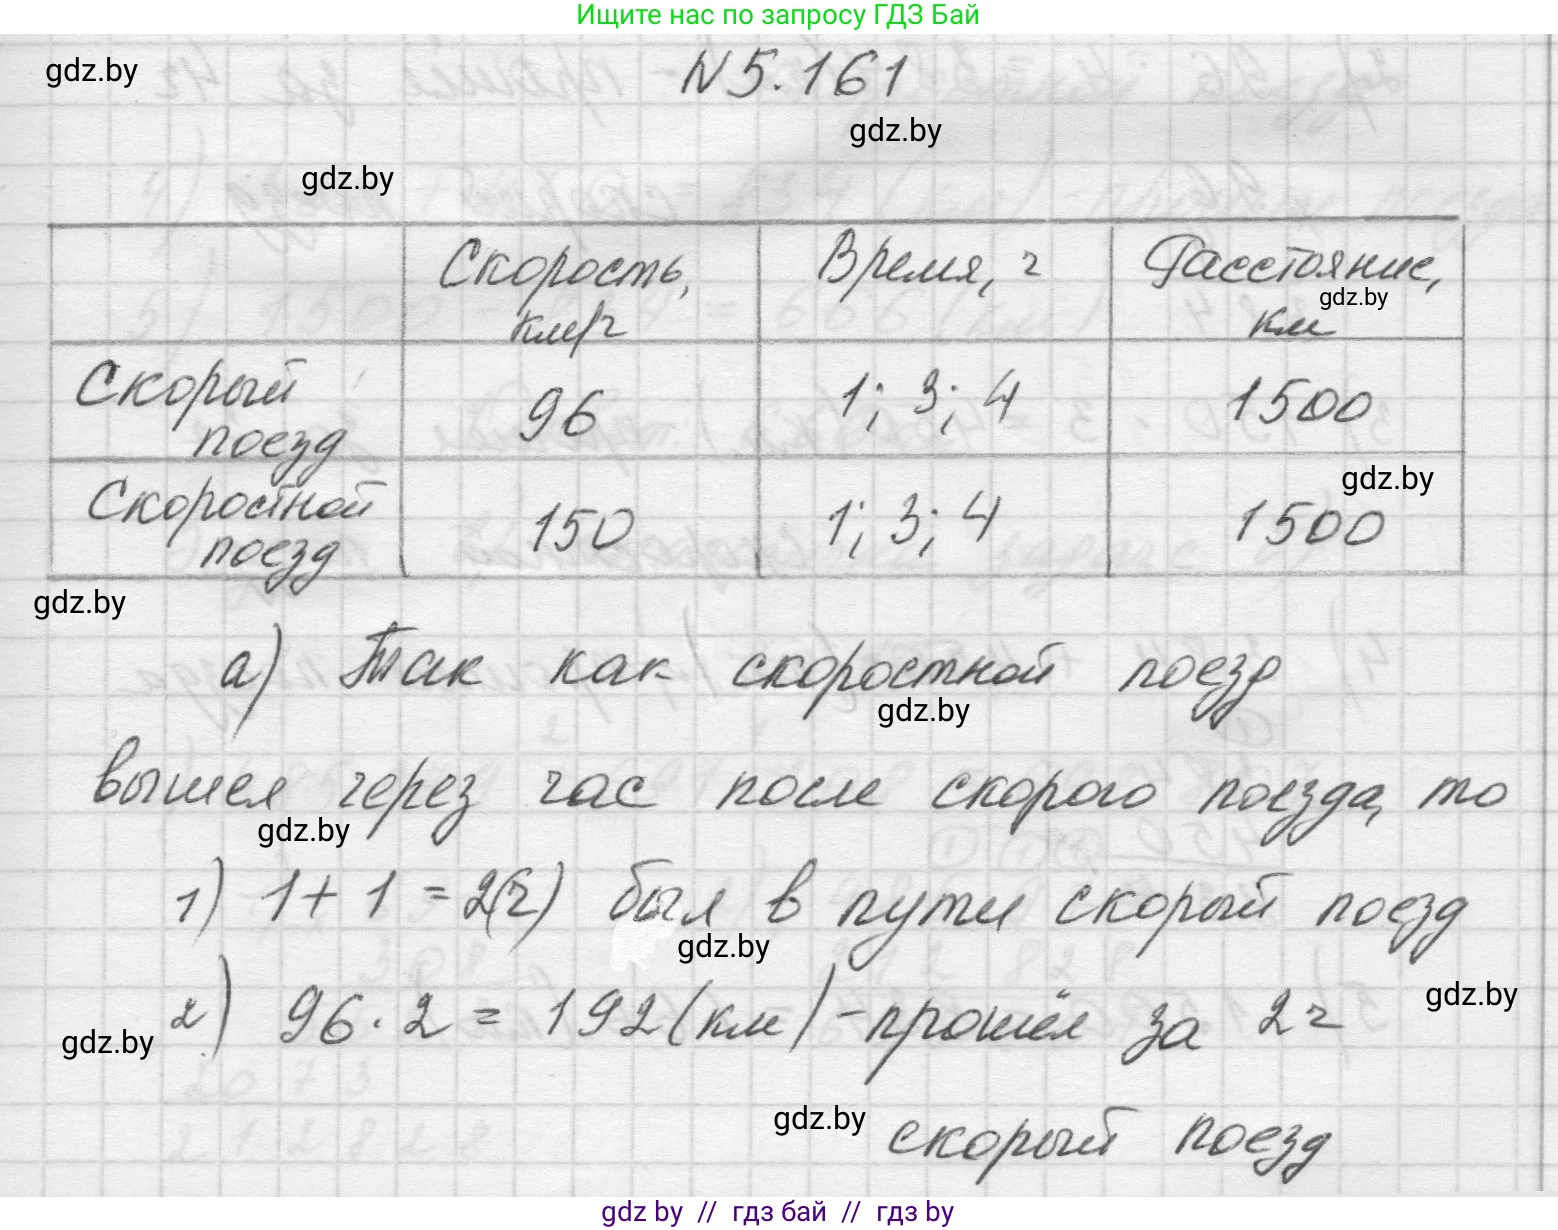 Ищите нас по запросу ГДЗ Бай
gdz.by
N 5.161
gdz.by
gdz.by
Скорость, км/ч
Время, ч
Расстояние, км
gdz.by
Скорый поезд
96
1; 3; 4
1500
gdz.by
Скоростной поезд
150
1; 3; 4
1500
gdz.by
а) Так как скоростной поезд
gdz.by
вышел через час после скорого поезда, то
gdz.by
1) 1 + 1 = 2(ч) был в пути скорый поезд
gdz.by
gdz.by
2) 96 · 2 = 192 (км) - прошёл за 2 ч
gdz.by
gdz.by
скорый поезд
gdz by // гдз бай // гдз by